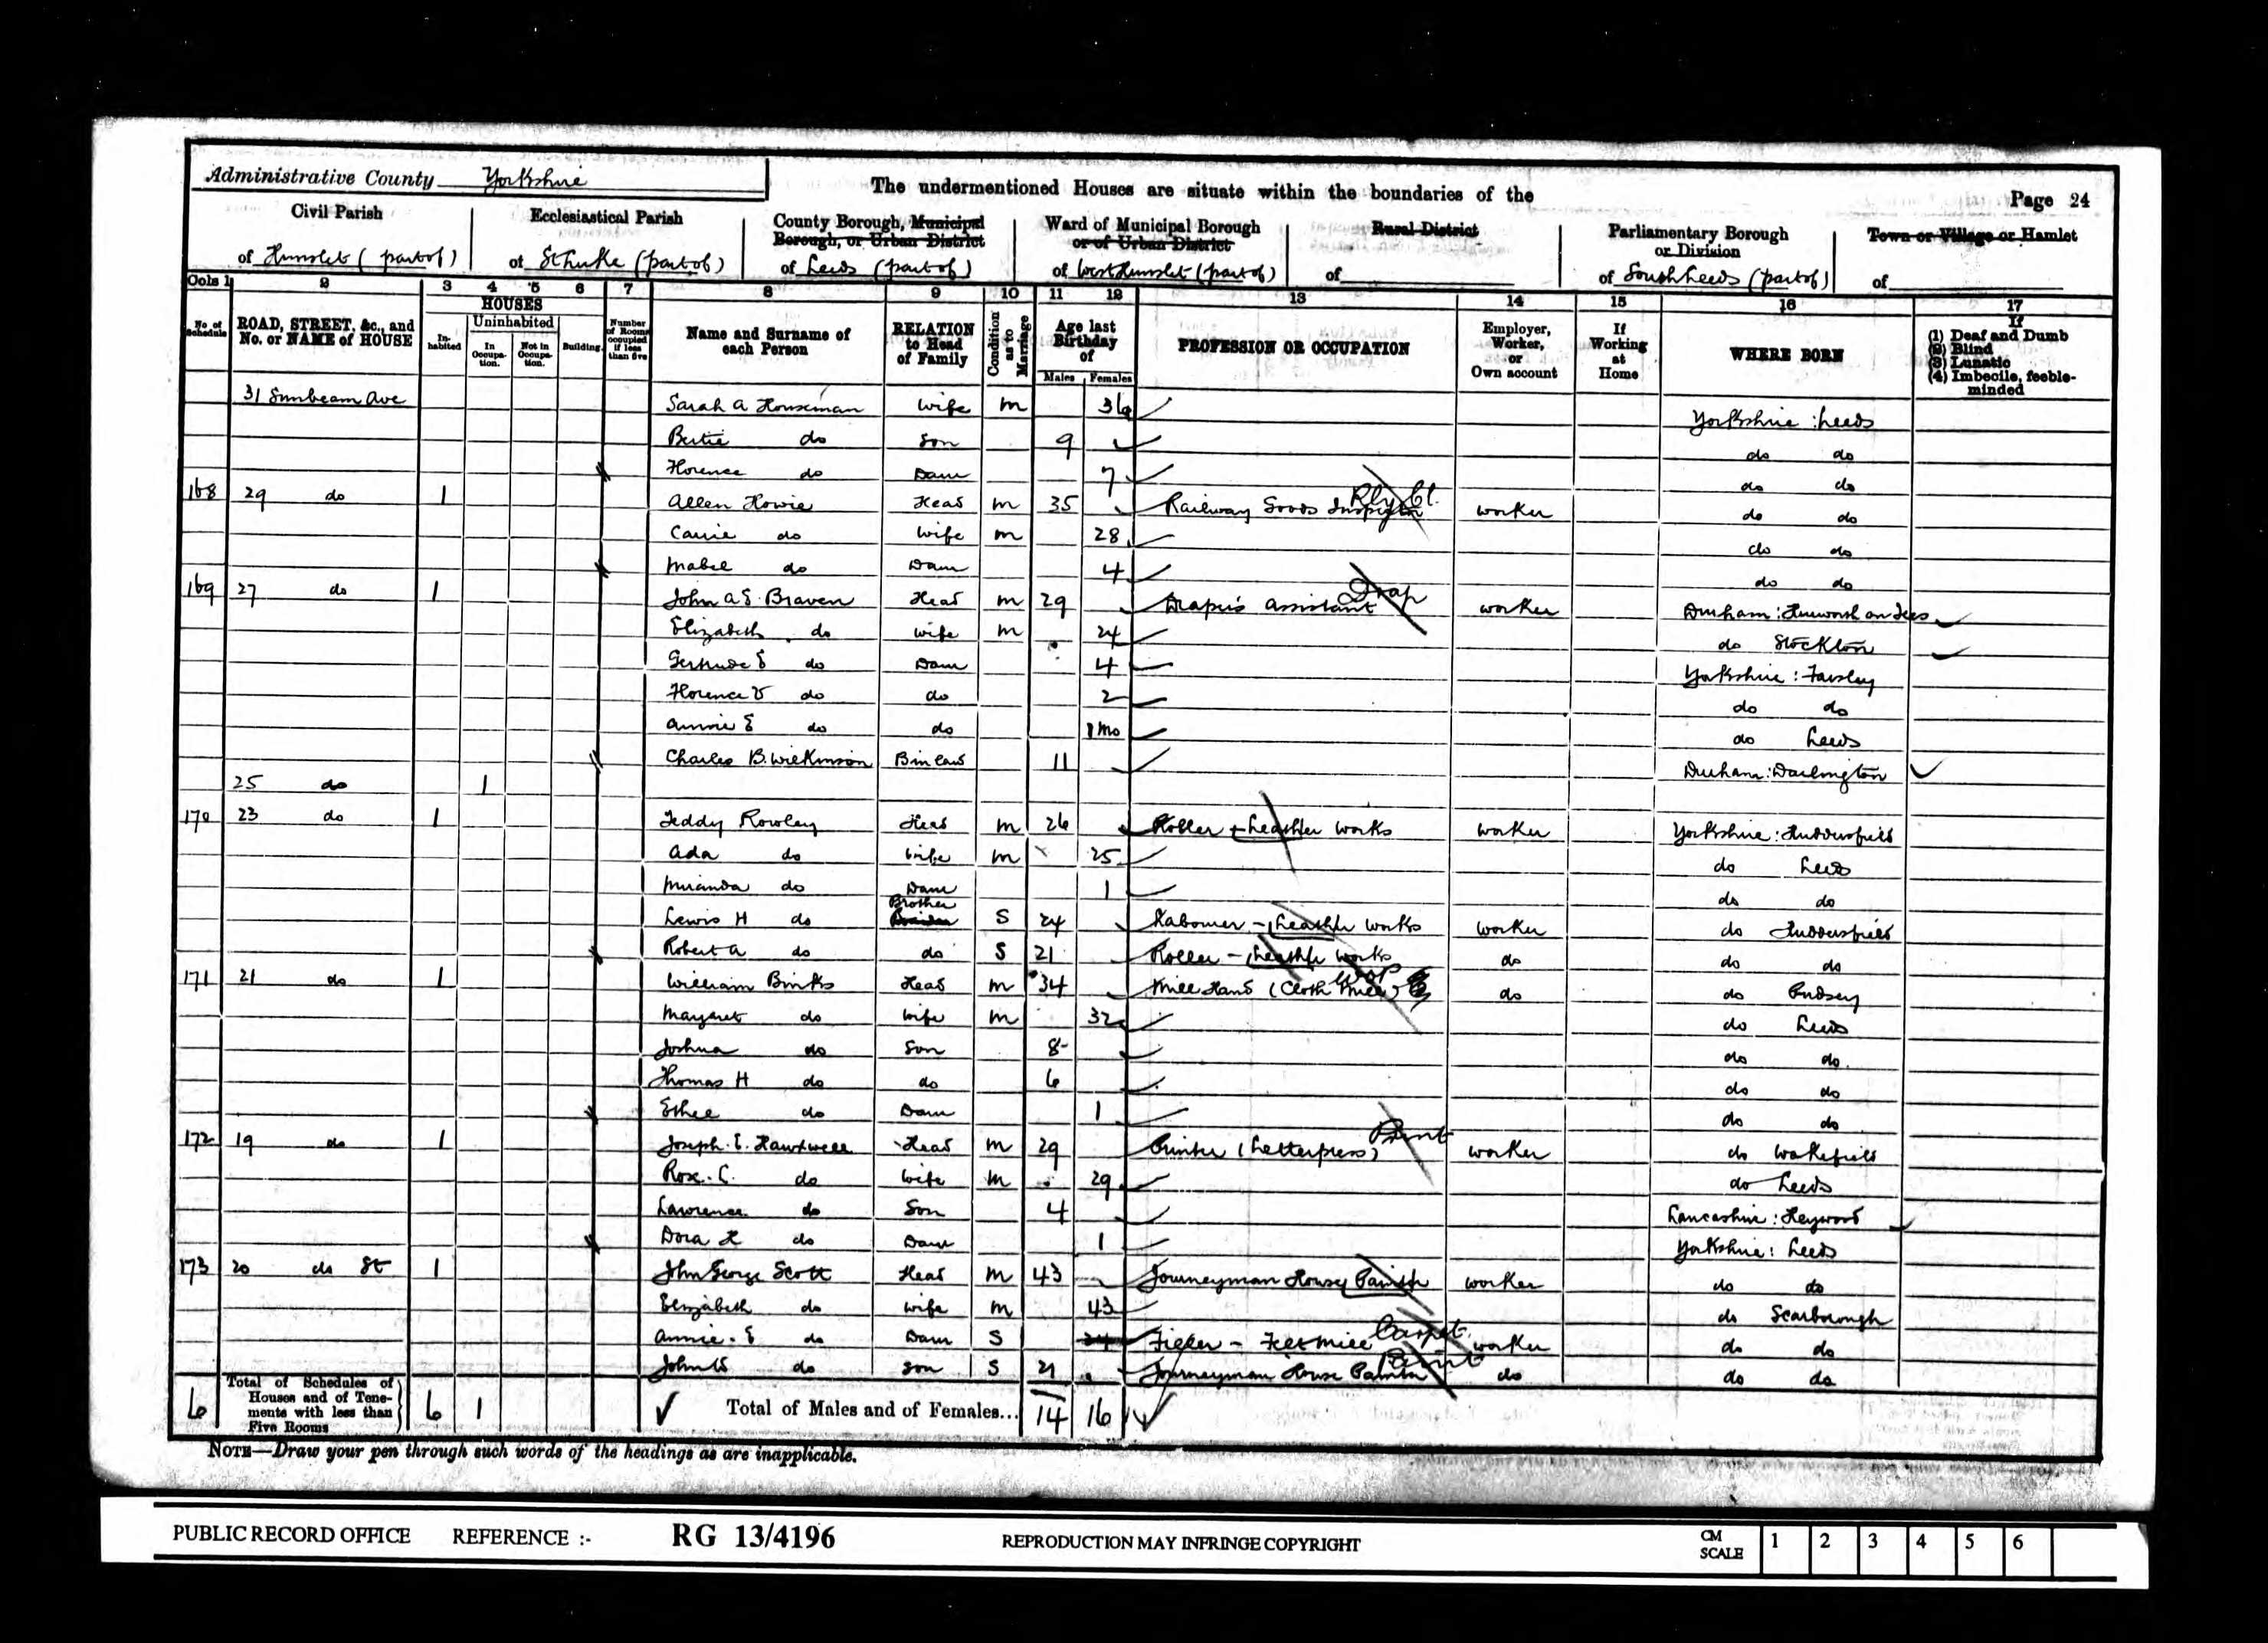 Administrative County Yorkshire
The undermentioned Houses are situate within the boundaries of the
Page 24
Civil Parish
of Hunslet (part of)
Ecclesiastical Parish
of St Luke (part of)
County Borough, Municipal Borough, or Urban District
of Leeds (part of)
Ward of Municipal Borough or of Urban District
of West Hunslet (part of)
Rural District
of
Parliamentary Borough or Division
of South Leeds (part of)
Town or Village or Hamlet
of
Cols 1 2 3 4 5 6 7 8 9 10 11 12 13 14 15 16 17
No of Schedule
ROAD, STREET, &c., and No. or NAME of HOUSE
HOUSES
In-habited
Uninhabited
In Occupa-tion.
Not in Occupa-tion.
Building
Number of Rooms occupied if less than five
Name and Surname of each Person
RELATION to Head of Family
Condition as to Marriage
Age last Birthday of
Males Females
PROFESSION OR OCCUPATION
Employer, Worker, or Own account
If Working at Home
WHERE BORN
If
(1) Deaf and Dumb
(2) Blind
(3) Lunatic
(4) Imbecile, feeble-minded
31 Sunbeam Ave Sarah A Houseman Wife m 36 Yorkshire : Leeds
Bertie do Son 9 do do
Florence do Daur 7 do do
168 29 do 1 Allen Howie Head m 35 Railway Goods Inspector Rly Cl. worker do do
Carrie do Wife m 28 do do
Mabel do Daur 4 do do
169 27 do 1 John A E Braven Head m 29 Drapers assistant Drap worker Durham : Hurworth on Tees
Elizabeth do Wife m 24 do Stockton
Gertrude E do Daur 4 Yorkshire : Farsley
Florence V do do 2 do do
Annie E do do 1 mo do Leeds
Charles B. Wilkinson B in law 11 Durham : Darlington
25 do 1
170 23 do 1 Teddy Rowley Head m 26 Roller - Leather works worker Yorkshire : Huddersfield
Ada do Wife m 25 do Leeds
Miranda do Daur 1 do do
Lewis H do Brother S 24 Labourer - Leather works worker do Huddersfield
Robert A do do S 21 Roller - Leather works do do do
171 21 do 1 William Binks Head m 34 Mill Hand (Cloth Mill) do do Pudsey
Margaret do Wife m 32 do Leeds
Joshua do Son 8 do do
Thomas H do do 6 do do
Ethel do Daur 1 do do
172 19 do 1 Joseph E. Head m 29 Printer (Letterpress) Print worker do Wakefield
Rose. C. do Wife m 29 do Leeds
Lawrence do Son 4 Lancashire : Heywood
Dora H do Daur 1 Yorkshire : Leeds
173 20 do St 1 John George Scott Head m 43 Journeyman House Painter worker do do
Elizabeth do Wife m 43 do Scarborough
Annie. E do Daur S 24 - Felt Mill Carpet worker do do
John W do Son S 21 Journeyman House Painter Paint do do do
6 Total of Schedules of Houses and of Tene-ments with less than Five Rooms 6 1 Total of Males and of Females... 14 16
NOTE—Draw your pen through such words of the headings as are inapplicable.
PUBLIC RECORD OFFICE REFERENCE :- RG 13/4196 REPRODUCTION MAY INFRINGE COPYRIGHT CM SCALE 1 2 3 4 5 6